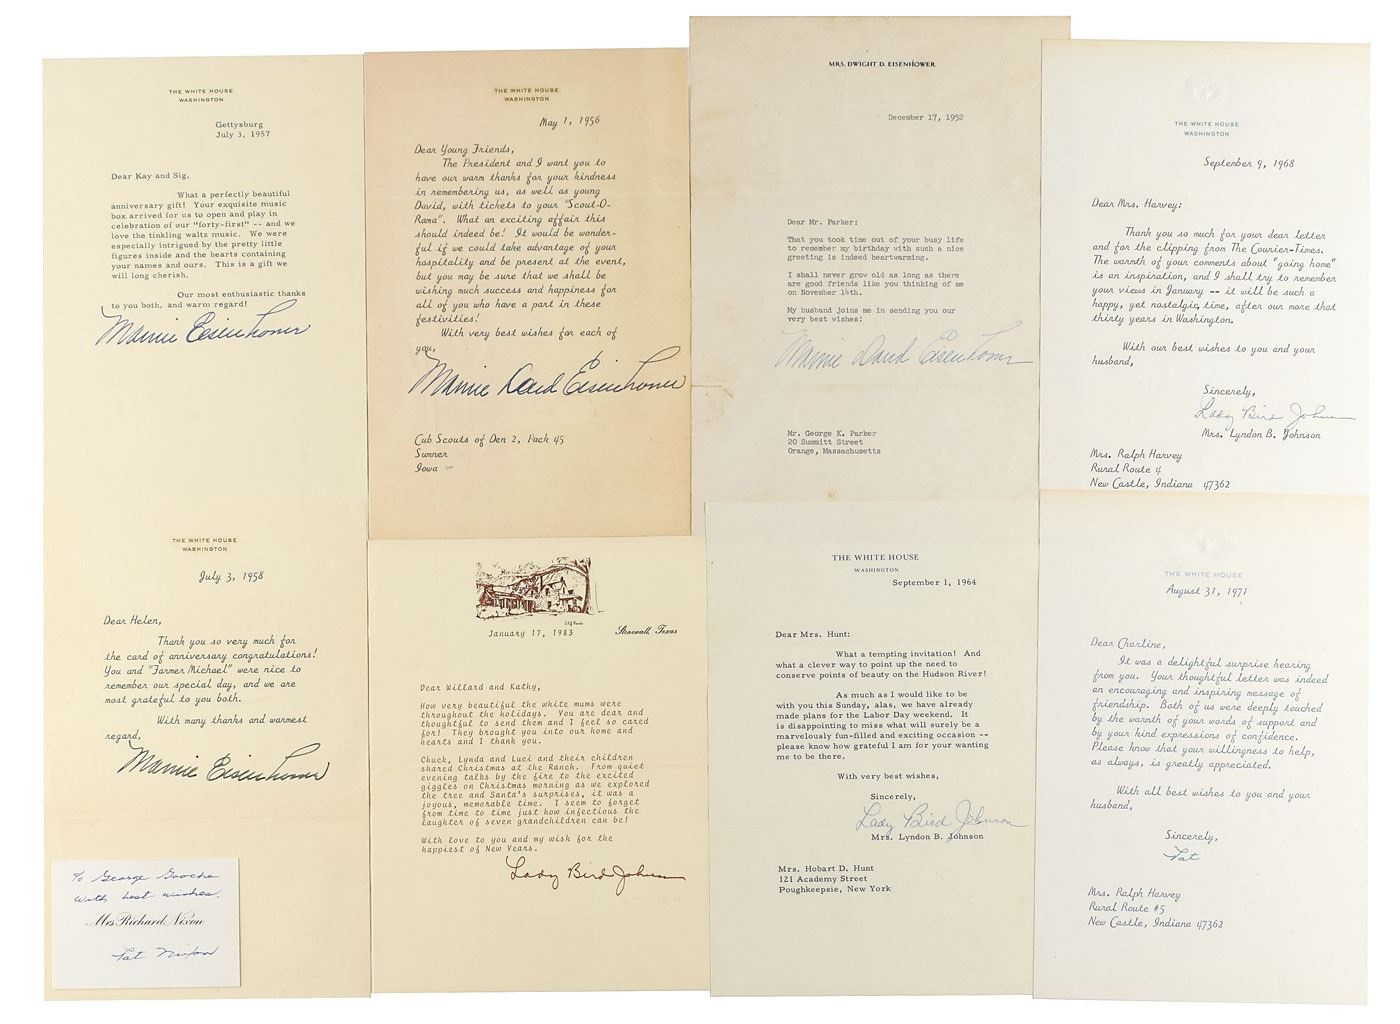 THE WHITE HOUSE
WASHINGTON
Gettysburg
July 3, 1957
Dear Kay and Sig,
What a perfectly beautiful
anniversary gift! Your exquisite music
box arrived for us to open and play in
celebration of our "forty-first" -- and we
love the tinkling waltz music. We were
especially intrigued by the pretty little
figures inside and the hearts containing
your names and ours. This is a gift we
will long cherish.
Our most enthusiastic thanks
to you both, and warm regard!
Mamie Eisenhower
THE WHITE HOUSE
WASHINGTON
May 1, 1956
Dear Young Friends,
The President and I want you to
have our warm thanks for your kindness
in remembering us, as well as young
David, with tickets to your "Scout-O-
Rama". What an exciting affair this
should indeed be! It would be wonder-
ful if we could take advantage of your
hospitality and be present at the event,
but you may be sure that we shall be
wishing much success and happiness for
all of you who have a part in these
festivities!
With very best wishes for each of
you,
Mamie Doud Eisenhower
Cub Scouts of Den 2, Pack 45
Sumner
Iowa
MRS. DWIGHT D. EISENHOWER
December 17, 1952
Dear Mr. Parker:
That you took time out of your busy life
to remember my birthday with such a nice
greeting is indeed heartwarming.
I shall never grow old as long as there
are good friends like you thinking of me
on November 14th.
My husband joins me in sending you our
very best wishes!
Mamie Doud Eisenhower
Mr. George K. Parker
20 Summitt Street
Orange, Massachusetts
THE WHITE HOUSE
WASHINGTON
September 9, 1968
Dear Mrs. Harvey:
Thank you so much for your dear letter
and for the clipping from The Courier-Times.
The warmth of your comments about "going home"
is an inspiration, and I shall try to remember
your views in January -- it will be such a
happy, yet nostalgic, time, after our more that
thirty years in Washington.
With our best wishes to you and your
husband,
Sincerely,
Lady Bird Johnson
Mrs. Lyndon B. Johnson
Mrs. Ralph Harvey
Rural Route 4
New Castle, Indiana 47362
THE WHITE HOUSE
WASHINGTON
July 3, 1958
Dear Helen,
Thank you so very much for
the card of anniversary congratulations!
You and "Farmer Michael" were nice to
remember our special day, and we are
most grateful to you both.
With many thanks and warmest
regard,
Mamie Eisenhower
To George Goocha
With best wishes.
Mrs. Richard Nixon
Pat Nixon
January 17, 1983
Stonewall, Texas
Dear Willard and Kathy,
How very beautiful the white mums were
throughout the holidays. You are dear and
thoughtful to send them and I feel so cared
for! They brought you into our home and
hearts and I thank you.
Chuck, Lynda and Luci and their children
shared Christmas at the Ranch. From quiet
evening talks by the fire to the excited
giggles on Christmas morning as we explored
the tree and Santa's surprises, it was a
joyous, memorable time. I seem to forget
from time to time just how infectious the
laughter of seven grandchildren can be!
With love to you and my wish for the
happiest of New Years.
Lady Bird Johnson
THE WHITE HOUSE
WASHINGTON
September 1, 1964
Dear Mrs. Hunt:
What a tempting invitation! And
what a clever way to point up the need to
conserve points of beauty on the Hudson River!
As much as I would like to be
with you this Sunday, alas, we have already
made plans for the Labor Day weekend. It
is disappointing to miss what will surely be a
marvelously fun-filled and exciting occasion --
please know how grateful I am for your wanting
me to be there.
With very best wishes,
Sincerely,
Lady Bird Johnson
Mrs. Lyndon B. Johnson
Mrs. Hobart D. Hunt
121 Academy Street
Poughkeepsie, New York
THE WHITE HOUSE
August 31, 1971
Dear Charline,
It was a delightful surprise hearing
from you. Your thoughtful letter was indeed
an encouraging and inspiring message of
friendship. Both of us were deeply touched
by the warmth of your words of support and
by your kind expressions of confidence.
Please know that your willingness to help,
as always, is greatly appreciated.
With all best wishes to you and your
husband,
Sincerely,
Pat
Mrs. Ralph Harvey
Rural Route #5
New Castle, Indiana 47362